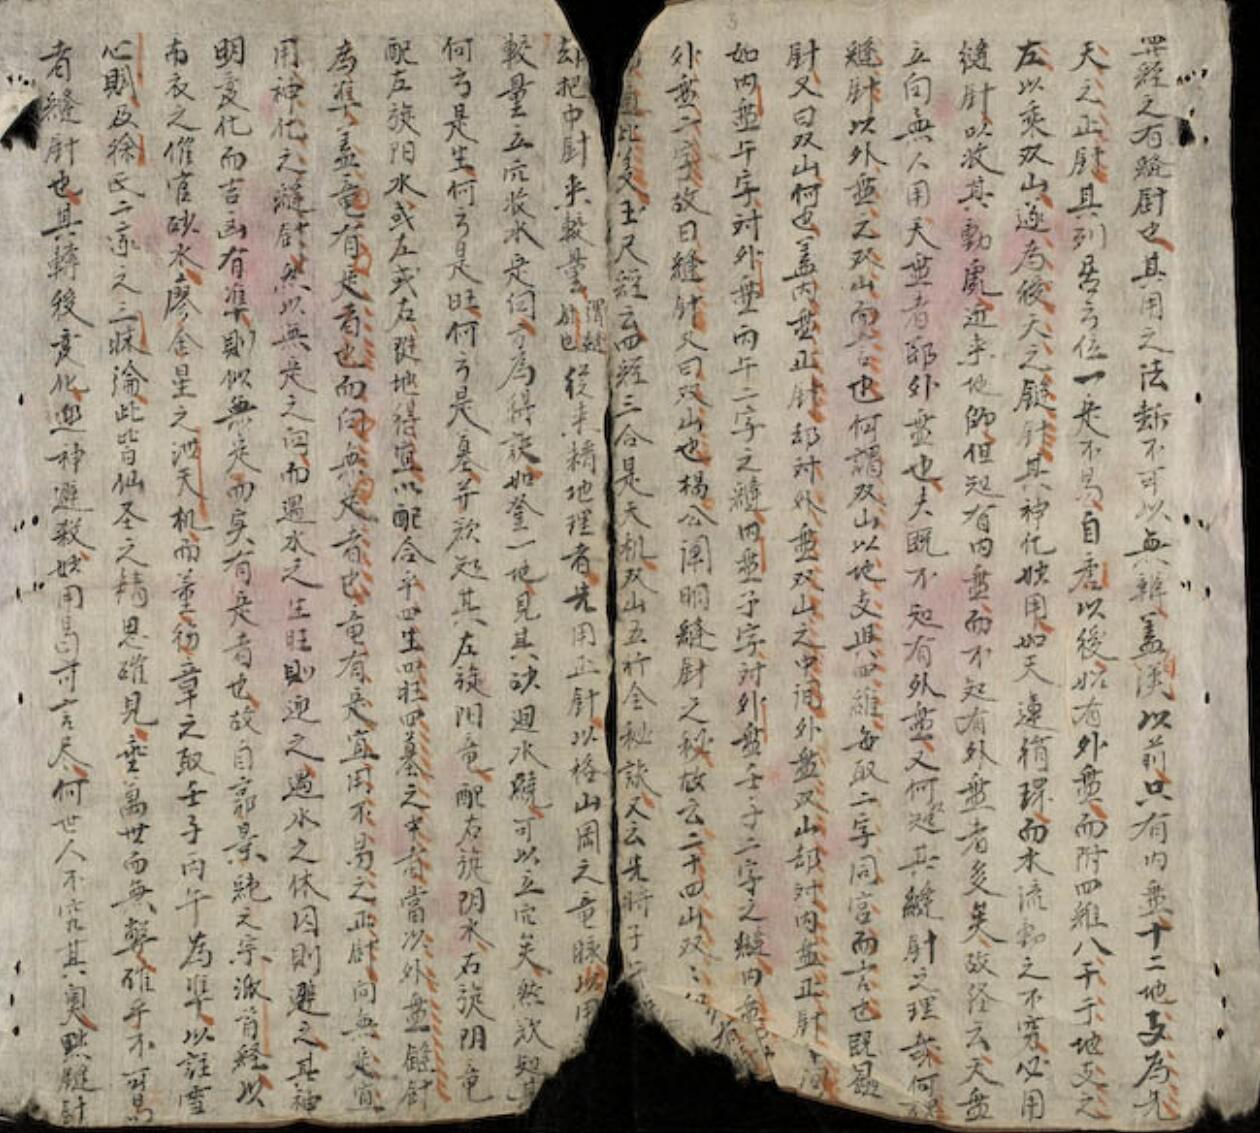 羅經之有縫針也其用之法斷不可以無辨盖漢以前只有内盤十二地支為先
天之正針其列居方位一定不易自唐以後始有外盤而附四維八干于地支之
左以乘双山遂為後天之縫針其神化妙用如天運循環而水流動之不窮必用
縫針以收其動處近来地師但知有内盤而不知有外盤者多矣故経云天盤
立向無人用天盤者即外盤也夫既不知有外盤又何知其縫針之理哉何謂
縫針以外盤之双山而言也何謂双山以地支與四維每取二字同宫而言也既顯
針又曰双山何也盖内盤正針却対外盤双山之中間外盤双山却対内盤正針
如内盤午字対外盤丙午二字之縫内盤子字対外盤壬子二字之縫内盤
外盤二字故曰縫針又曰双山也楊公闡明縫針之秘故云二十四山双〻
玉尺経云四経三合是天机双山五行全秘訣又云先將子
却把中針来較量謂縫針也從来精地理者先用正針以格山岡之竜脉以用
較量立穴收水是何方為得訣如登一地見其砂廻水繞可以立穴矣然欲知其
何方是生何方是旺何方是墓并欲知其左旋阳竜配右旋阴水右旋阴竜
配左旋阳水或左或右從地得宜以配合乎四生四旺四墓之中者當以外盤縫針
為準盖竜有定者也而向無定者也竜有定宜用不易之正針向無定宜
用神化之縫針然以無定之向而遇水之生旺則迎之遇水之休囚則避之其神
明变化而吉凶有準則似無定而实有定者也故自郭景純元宗派首経以
布衣之催官砂水廖金星之泄天机而董彷章之取壬子丙午為準以註雪
心賦及徐氏二家之三昧論此皆仙圣之精思確見垂萬世而無弊確乎不可易
者縫針也其轉移变化迎神避殺妙用曷可言尽何世人不究其奥點縫針